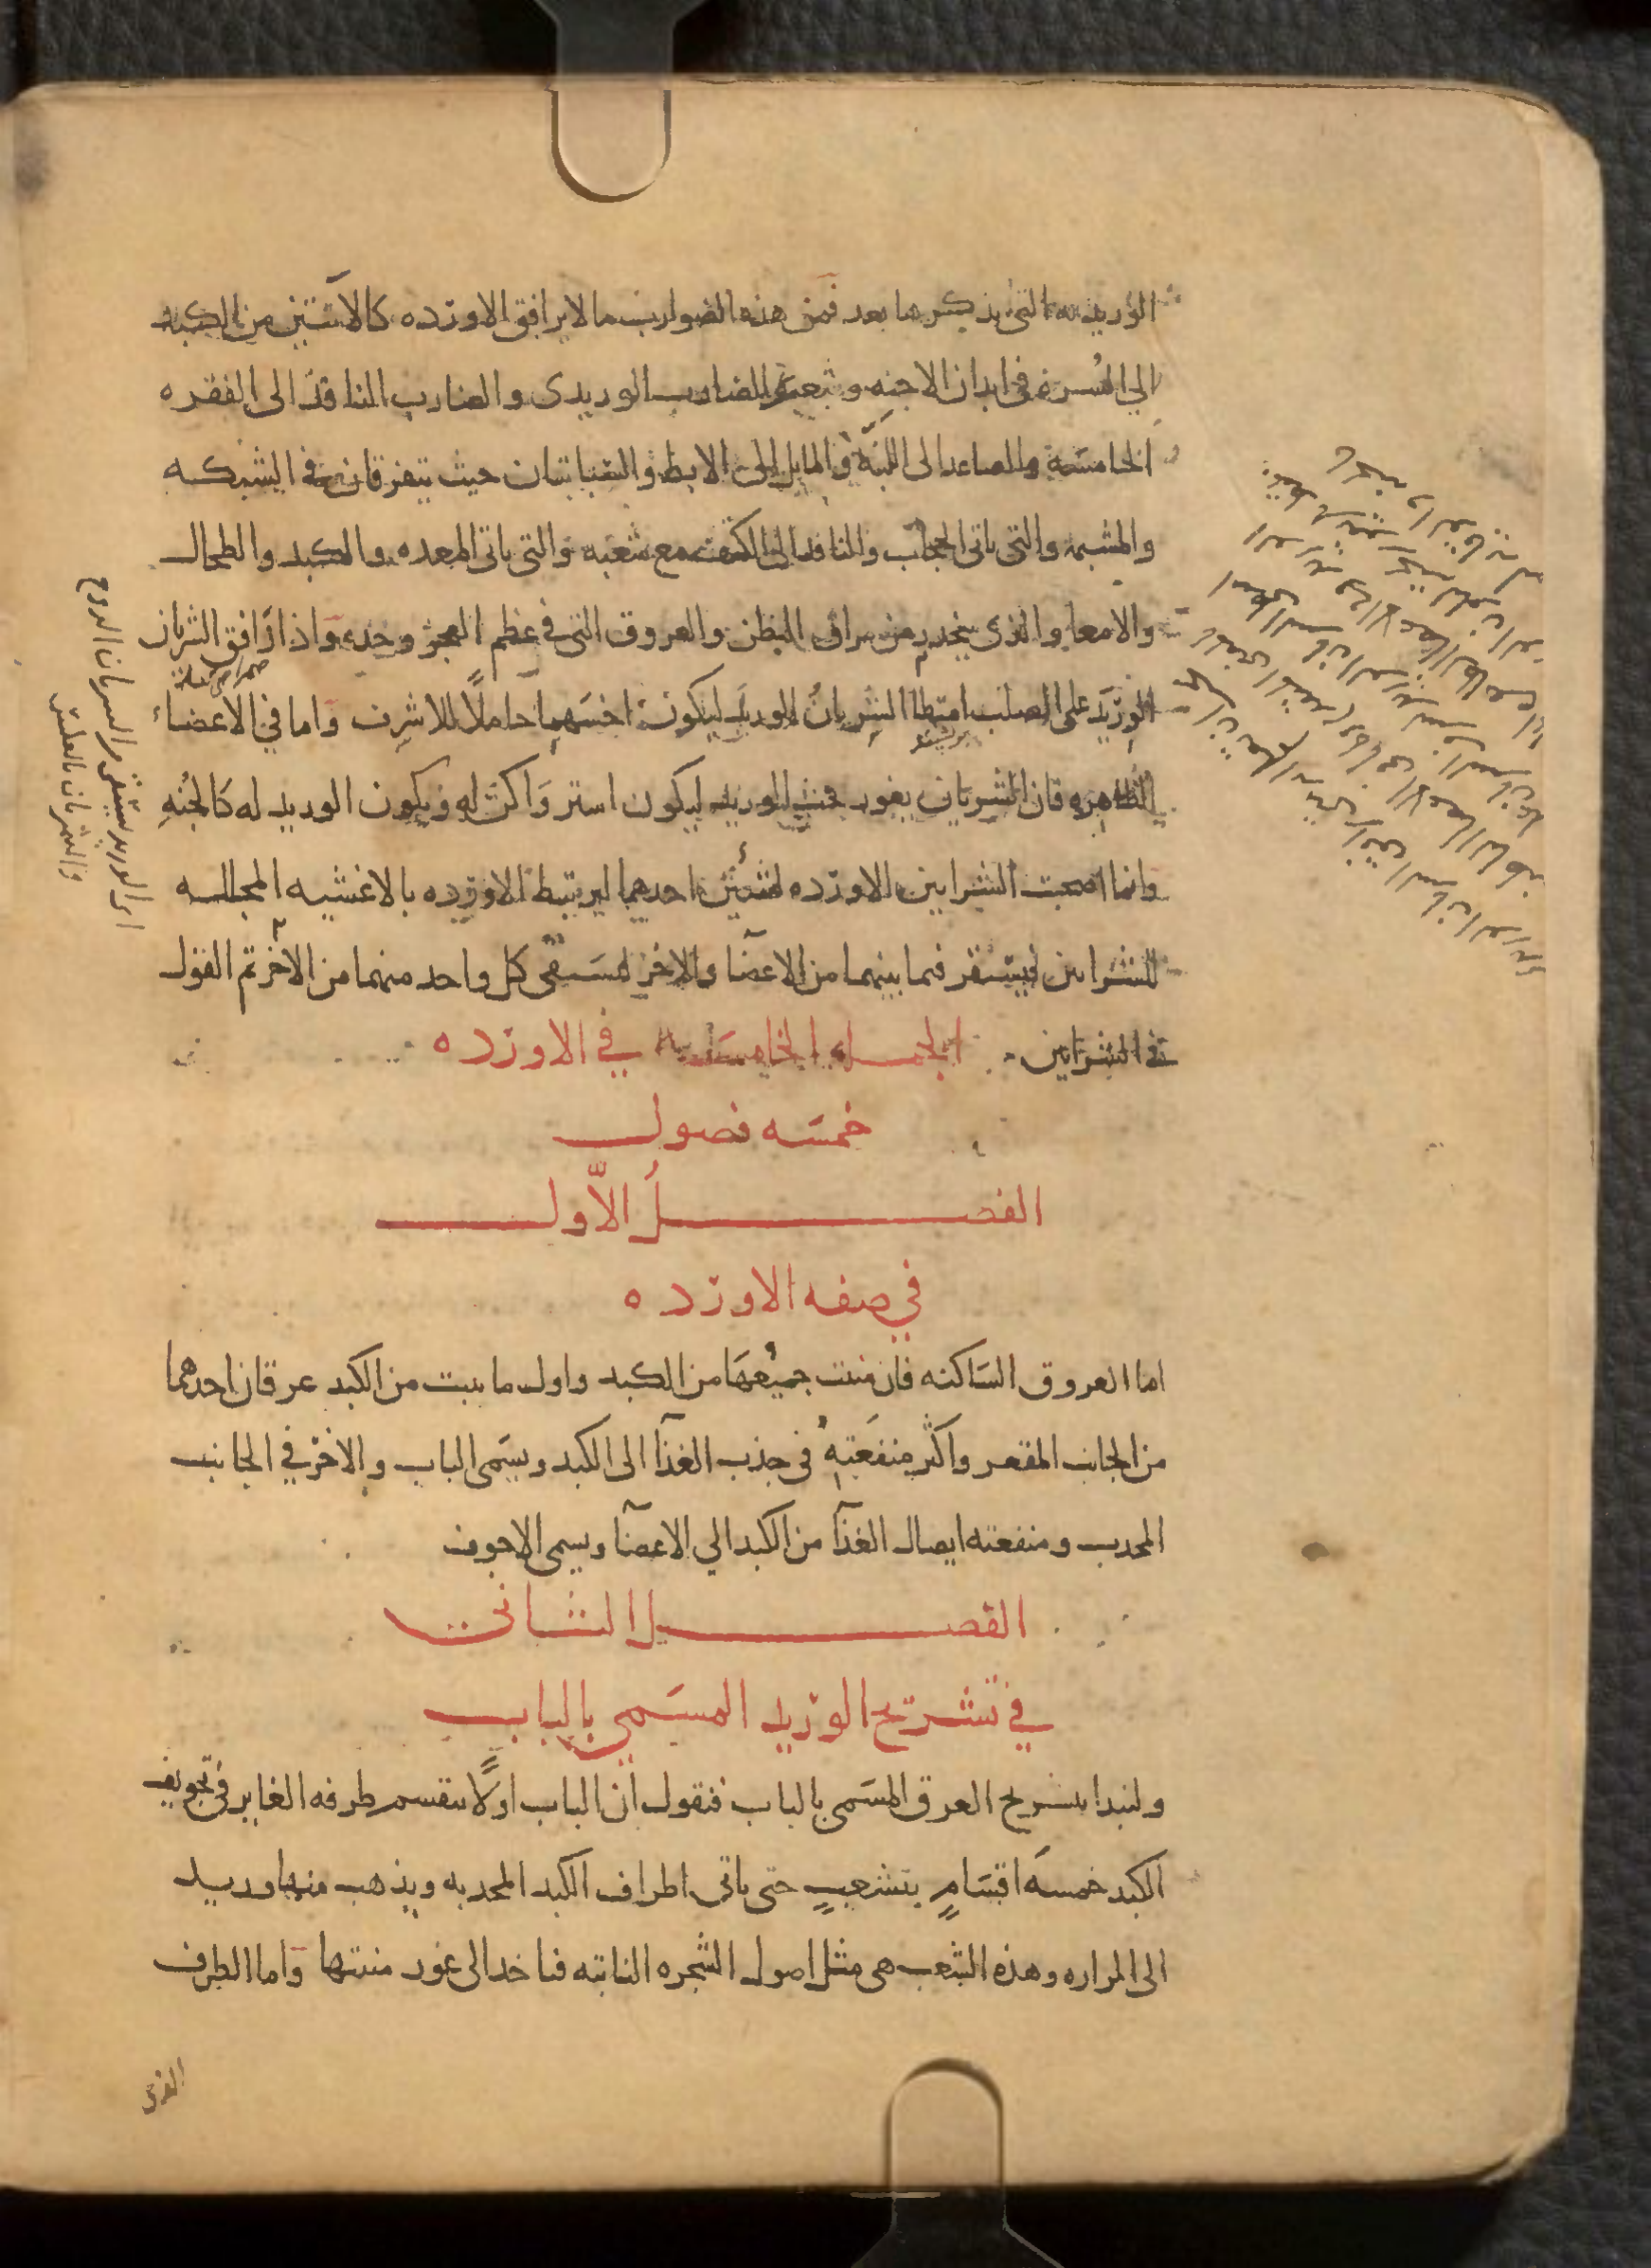 الوريديه التى نذكرها بعد فمن هذه الضوارب ما لا يرافق الاورده كالاثنين من الكبد
الى السره فى ابدان الاجنه وشعبه الضارب الوريدى والضارب النافذ الى الفقره
الخامسه والصاعد الى اللبه والمايل الى الابط والسباتيان حيث يتفرقان فى الشبكه
والمشيمه والتى ياتى الحجاب والنافذ الى الكتف مع شعبه والتى ياتى المعده والكبد والطحال
والامعا والذى ينحدر من مراق البطن والعروق التى فى عظم العجز وحده واذا رافق الشريان
الوريد على الصلب امتطا الشريان الوريد ليكون اخسهما حاملاً للاشرف واما فى الاعضاء
الظاهره فان الشريان يغور تحت الوريد ليكون استر واكن له ويكون الوريد له كالجنه
وانما اصحبت الشرايين الاورده لشيئين احدهما ليرتبط الاورده بالاغشيه المجلله
للشرايين فيستقر فيما بينهما من الاعضآ والاخر ليستقى كل واحد منهما من الاخر تم القول
فى الشرايين الجمله الخامسه فى الاورده
خمسه فصول
الفصل الاول
فى صفه الاورده
اما العروق الساكنه فان منبت جميعها من الكبد واول ما ينبت من الكبد عرقان احدهما
من الجانب المقعر واكثر منفعته فى جذب الغذآ الى الكبد ويسمى الباب والاخر فى الجانب
المحدب ومنفعته ايصال الغذآ من الكبد الى الاعضآ ويسمى الاجوف
الفصل الثانى
فى تشريح الوريد المسمى بالباب
ولنبدا بتشريح العرق المسمى بالباب فنقول ان الباب اولاً ينقسم طرفه الغاير فى تجويف
الكبد خمسه اقسام يتشعب حتى ياتى اطراف الكبد المحدبه ويذهب منها وريد
الى المراره وهذه الشعب هى مثل اصول الشجره النابته فتاخذ الى غور منبتها واما الطرف
الذى
اى الوريد يستقى من الشريان الروح
والشريان بالعكس